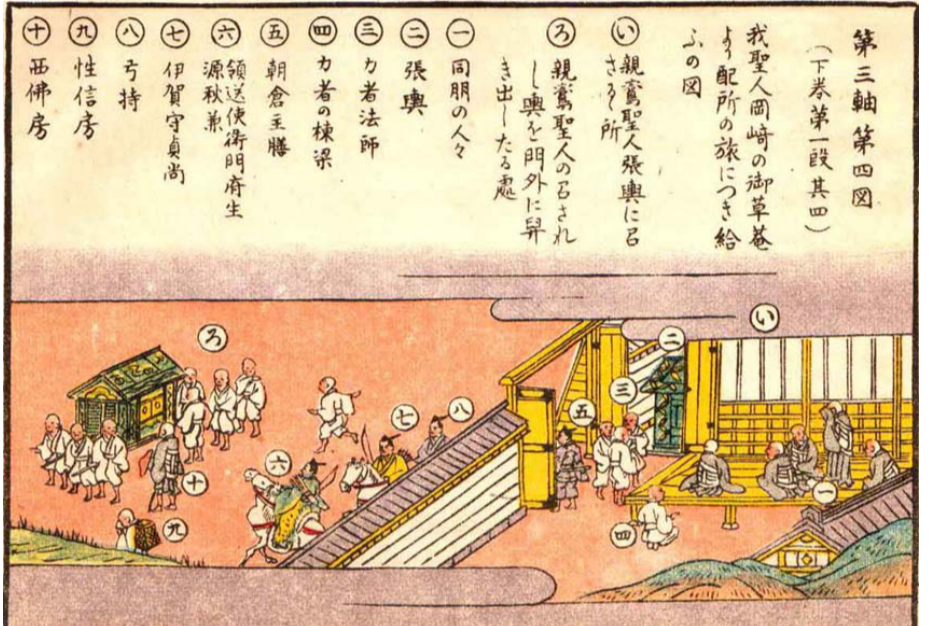 第三軸 第四図
（下巻第一段 其四）
我聖人岡﨑の御草菴
より配所の旅につき給
ふの図
い 親鸞聖人張輿に召
さるゝ所
ろ 親鸞聖人の召され
し輿を門外に舁
き出したる處
一 同朋の人々
二 張輿
三 力者法師
四 力者の棟梁
五 朝倉主膳
六 領送使衛門府生
源秋兼
七 伊賀守貞尚
八 弓持
九 性信房
十 西佛房
い
二
三
五
四
一
八
七
六
ろ
十
九